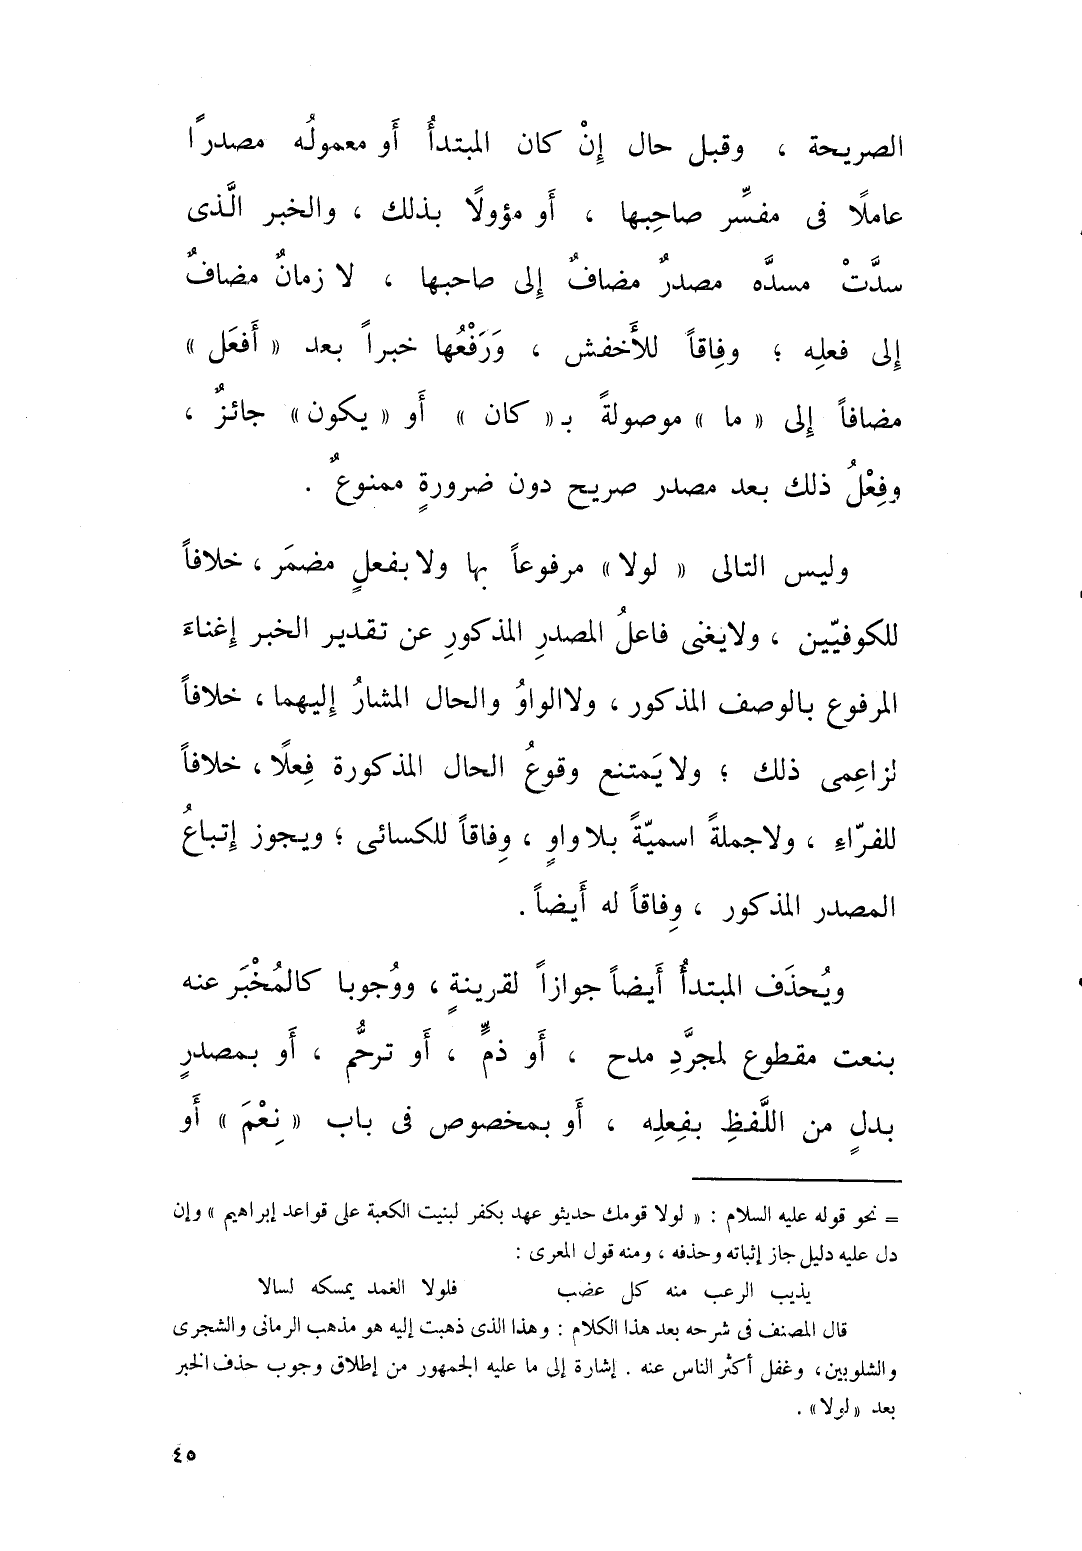 الصريحة ، وقبل حال إِنْ كان المبتدأُ أَو معمولُه مصدرًا
عاملًا فى مفسِّر صاحِبها ، أَو مؤولًا بذلك ، والخبر الَّذى
سدَّتْ مسدَّه مصدرٌ مضافٌ إِلى صاحبها ، لا زمانٌ مضافٌ
إِلى فعلِه ؛ وفِاقاً للأَخفش ، وَرَفْعُها خبراً بعد « أَفعَل »
مضافاً إِلى « ما » موصولةً بـ « كان » أَو « يكون » جائزٌ ،
وفِعْلُ ذلك بعد مصدر صريح دون ضرورةٍ ممنوعٌ .
وليس التالى « لولا » مرفوعاً بها ولا بفعلٍ مضمَر ، خلافاً
للكوفيّين ، ولايغنى فاعلُ المصدرِ المذكورِ عن تقدير الخبر إِغناءَ
المرفوع بالوصف المذكور ، ولاالواوُ والحال المشارُ إِليهما ، خلافاً
لزاعِمى ذلك ؛ ولا يَمتنع وقوعُ الحال المذكورة فِعلًا ، خلافاً
للفرّاءِ ، ولاجملةً اسميّةً بلا واوٍ ، وِفاقاً للكسائى ؛ ويجوز إِتباعُ
المصدر المذكور ، وِفاقاً له أَيضاً .
ويُحذَف المبتدأُ أَيضاً جوازاً لقرينةٍ ، ووُجوبا كالمُخْبَر عنه
بنعت مقطوع لمجرَّدِ مدح ، أَو ذمٍّ ، أَو ترحُّم ، أَو بمصدرٍ
بدلٍ من اللَّفظِ بفِعلِه ، أَو بمخصوص فى باب « نِعْمَ » أَو
= نحو قوله عليه السلام : « لولا قومك حديثو عهد بكفر لبنيت الكعبة على قواعد إبراهيم » وإن
دل عليه دليل جاز إثباته وحذفه ، ومنه قول المعرى :
يذيب الرعب منه كل عضب فلولا الغمد يمسكه لسالا
قال المصنف فى شرحه بعد هذا الكلام : وهذا الذى ذهبت إليه هو مذهب الرمانى والشجرى
والشلوبين ، وغفل أكثر الناس عنه . إشارة إلى ما عليه الجمهور من إطلاق وجوب حذف الخبر
بعد « لولا » .
٤٥